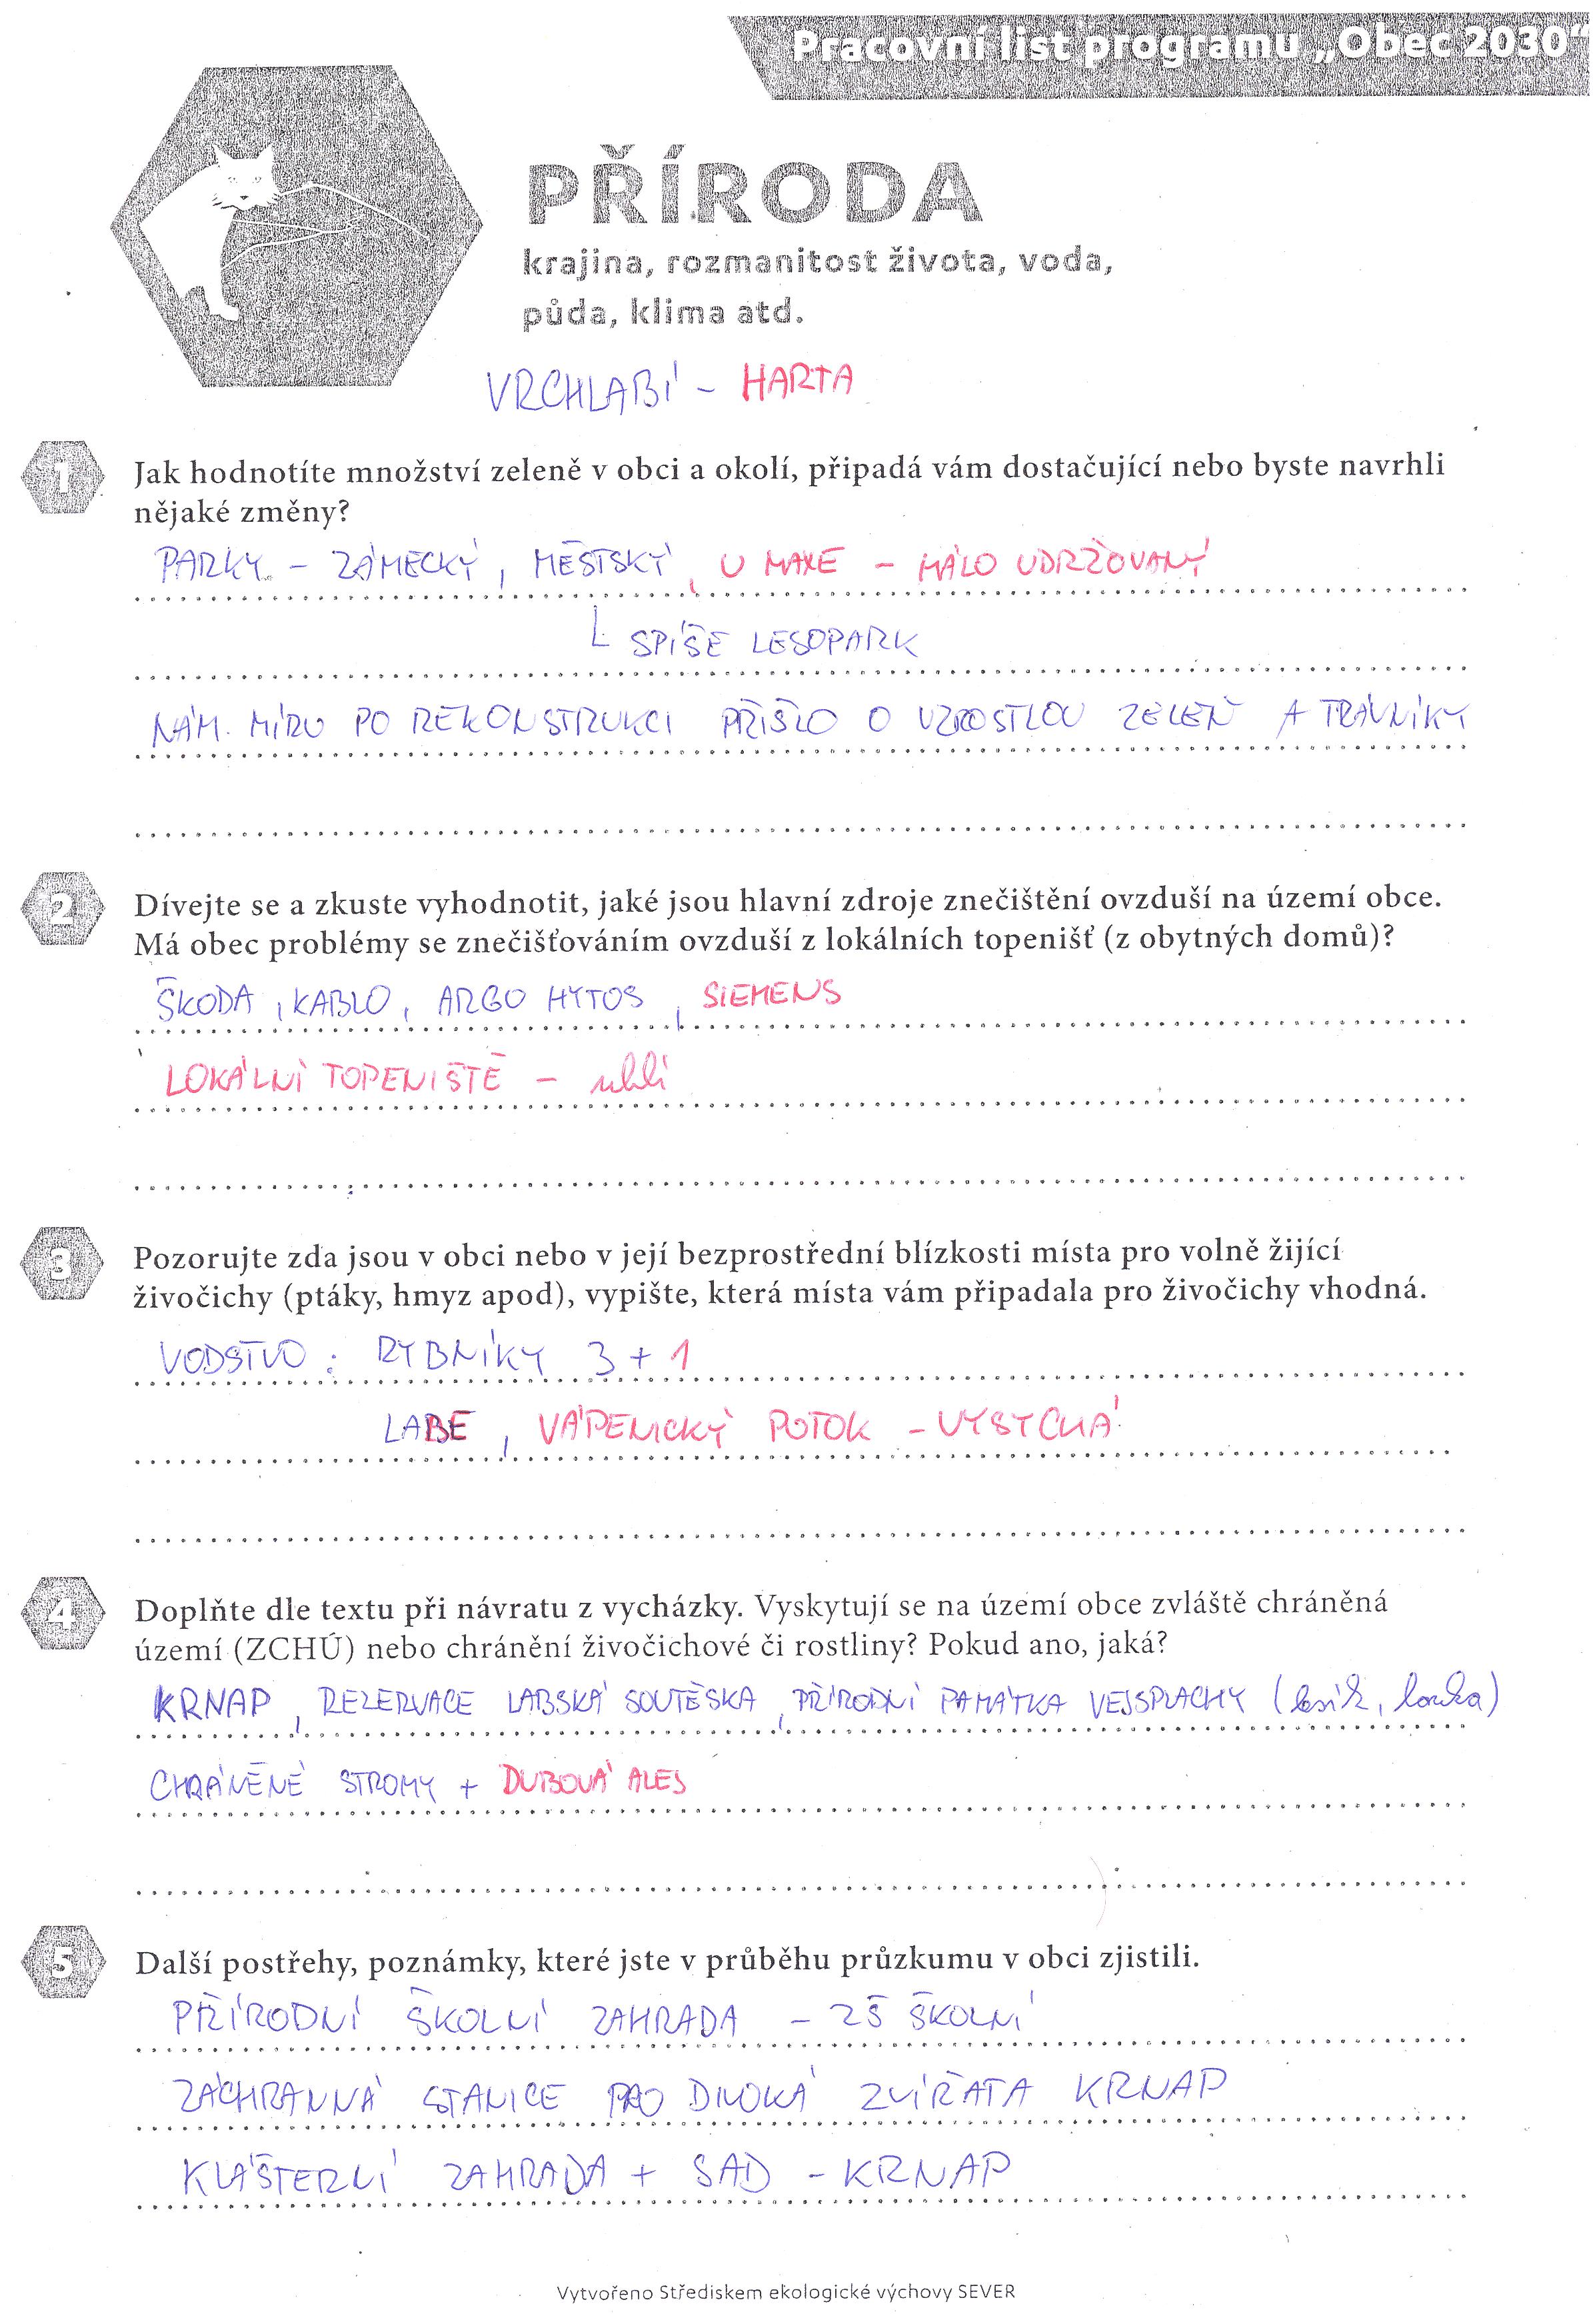 Pracovní list programu „Obec 2030“
PŘÍRODA
krajina, rozmanitost života, voda,
půda, klima atd.
VRCHLABÍ - HARTA
1
Jak hodnotíte množství zeleně v obci a okolí, připadá vám dostačující nebo byste navrhli
nějaké změny?
PARKY - ZÁMECKÝ, MĚSTSKÝ, U MAXE - MÁLO UDRŽOVANÝ
SPÍŠE LESOPARK
NÁM. MÍRU PO REKONSTRUKCI PŘIŠLO O VZROSTLOU ZELEŇ A TRÁVNÍKY
2
Dívejte se a zkuste vyhodnotit, jaké jsou hlavní zdroje znečištění ovzduší na území obce.
Má obec problémy se znečišťováním ovzduší z lokálních topenišť (z obytných domů)?
ŠKODA, KABLO, ARGO HYTOS, SIEMENS
LOKÁLNÍ TOPENIŠTĚ - uhlí
3
Pozorujte zda jsou v obci nebo v její bezprostřední blízkosti místa pro volně žijící
živočichy (ptáky, hmyz apod), vypište, která místa vám připadala pro živočichy vhodná.
VODSTVO: RYBNÍKY 3 + 1
LABE, VÁPENICKÝ POTOK - VYSYCHÁ
4
Doplňte dle textu při návratu z vycházky. Vyskytují se na území obce zvláště chráněná
území (ZCHÚ) nebo chránění živočichové či rostliny? Pokud ano, jaká?
KRNAP, REZERVACE LABSKÁ SOUTĚSKA, PŘÍRODNÍ PAMÁTKA VEJSPLACHY (lesík, louka)
CHRÁNĚNÉ STROMY + DUBOVÁ ALEJ
5
Další postřehy, poznámky, které jste v průběhu průzkumu v obci zjistili.
PŘÍRODNÍ ŠKOLNÍ ZAHRADA - ZŠ ŠKOLNÍ
ZÁCHRANNÁ STANICE PRO DIVOKÁ ZVÍŘATA KRNAP
KLÁŠTERNÍ ZAHRADA + SAD - KRNAP
Vytvořeno Střediskem ekologické výchovy SEVER